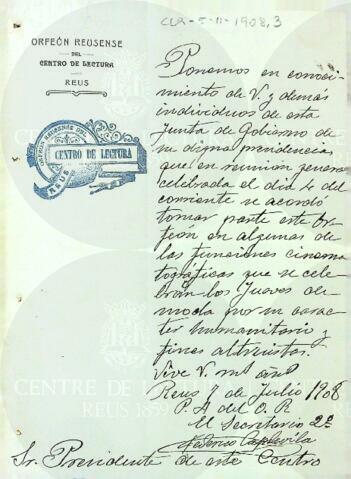 CLR-5-11-1908,3
ORFEÓN REUSENSE
DEL
CENTRO DE LECTURA
REUS
ORFEÓN REUSENSE DEL
CENTRO DE LECTURA
REUS
Ponemos en conoci-
miento de V. y demás
individuos de esta
Junta de Gobierno de
su digna presidencia
que en reunión general
celebrada el día 4 del
corriente se acordó
tomar parte este Or-
feón en algunas de
las funciones cinema-
tográficas que se cele-
brán los Jueves de
moda por su carac-
ter humanitario y
fines altruistas.
Vive V. ms. ans.
Reus 7 de Julio 1908
P. A del O. R
El Secretario 2º
Federico Capdevila
Sr. Presidente de este Centro
CENTRE DE LECTURA
REUS 1859